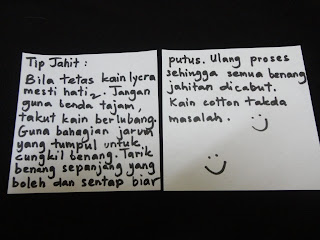 Tip Jahit :
Bila tetas kain lycra
mesti hati2. Jangan
guna benda tajam,
takut kain berlubang.
Guna bahagian jarum
yang tumpul untuk
cungkil benang. Tarik
benang sepanjang yang
boleh dan sentap biar
putus. Ulang proses
sehingga semua benang
jahitan dicabut.
Kain cotton takda
masalah.